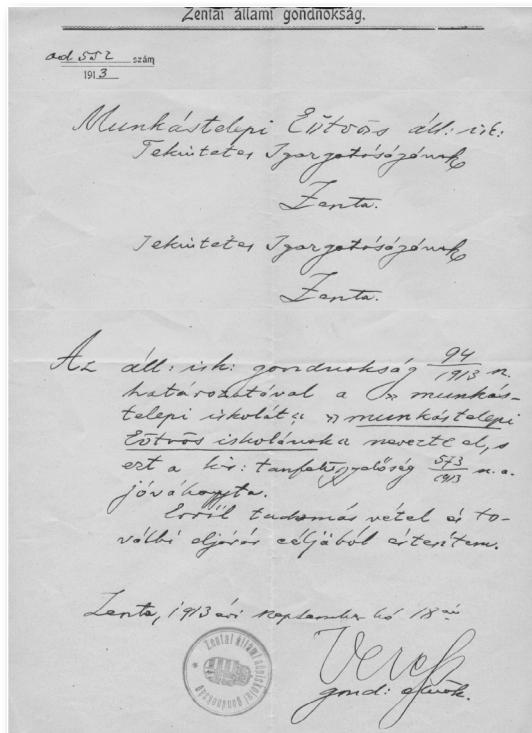 Zentai állami gondnokság.
ad 552 szám
1913
Munkástelepi Eötvös áll: isk:
Tekintetes Igazgatóságának
Zenta.
Tekintetes Igazgatóságának
Zenta.
Az áll: isk: gondnokság 94/1913 n.
határozatával a „munkás-
telepi iskolát" „munkástelepi
Eötvös iskolának" nevezte el, s
ezt a kir: tanfelügyelőség 573/1913 n. a.
jóváhagyta.
Erről tudomás vétel és to-
vábbi eljárás céljából értesítem.
Zenta, 1913 évi szeptember hó 18 án
Zentai állami népiskolai gondnokság
Veress
gond: elnök.